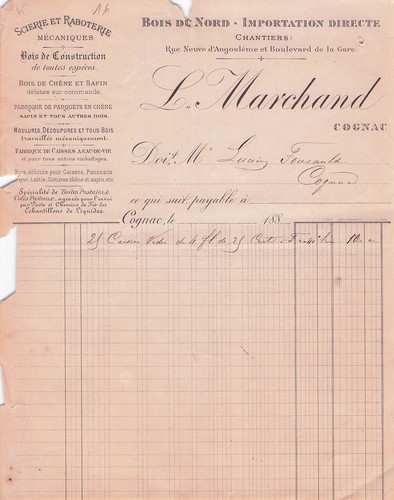 SCIERIE ET RABOTERIE
MÉCANIQUES
Bois de Construction
de toutes espèces.
BOIS DE CHÊNE ET SAPIN
débités sur commande.
FABRIQUE DE PARQUETS EN CHÊNE
SAPIN ET TOUS AUTRES BOIS.
MOULURES, DÉCOUPURES ET TOUS BOIS
travaillés mécaniquement.
FABRIQUE DE CAISSES À EAU-DE-VIE
et pour tous autres emballages.
Bois débités pour Caisses, Panneaux
Lattis, Clôtures chêne et sapin, etc
Spécialité de Boîtes Postales &
Colis Postaux, agencés pour l'envoi
par Poste et Chemins de Fer des
Échantillons de Liquides.
BOIS DU NORD - IMPORTATION DIRECTE
CHANTIERS:
Rue Neuve d'Angoulême et Boulevard de la Gare.
L. Marchand
COGNAC
Doit M
Cognac
ce qui suit, payable à
Cognac, le 188
25 Caisses Vides de 4 fl de 35